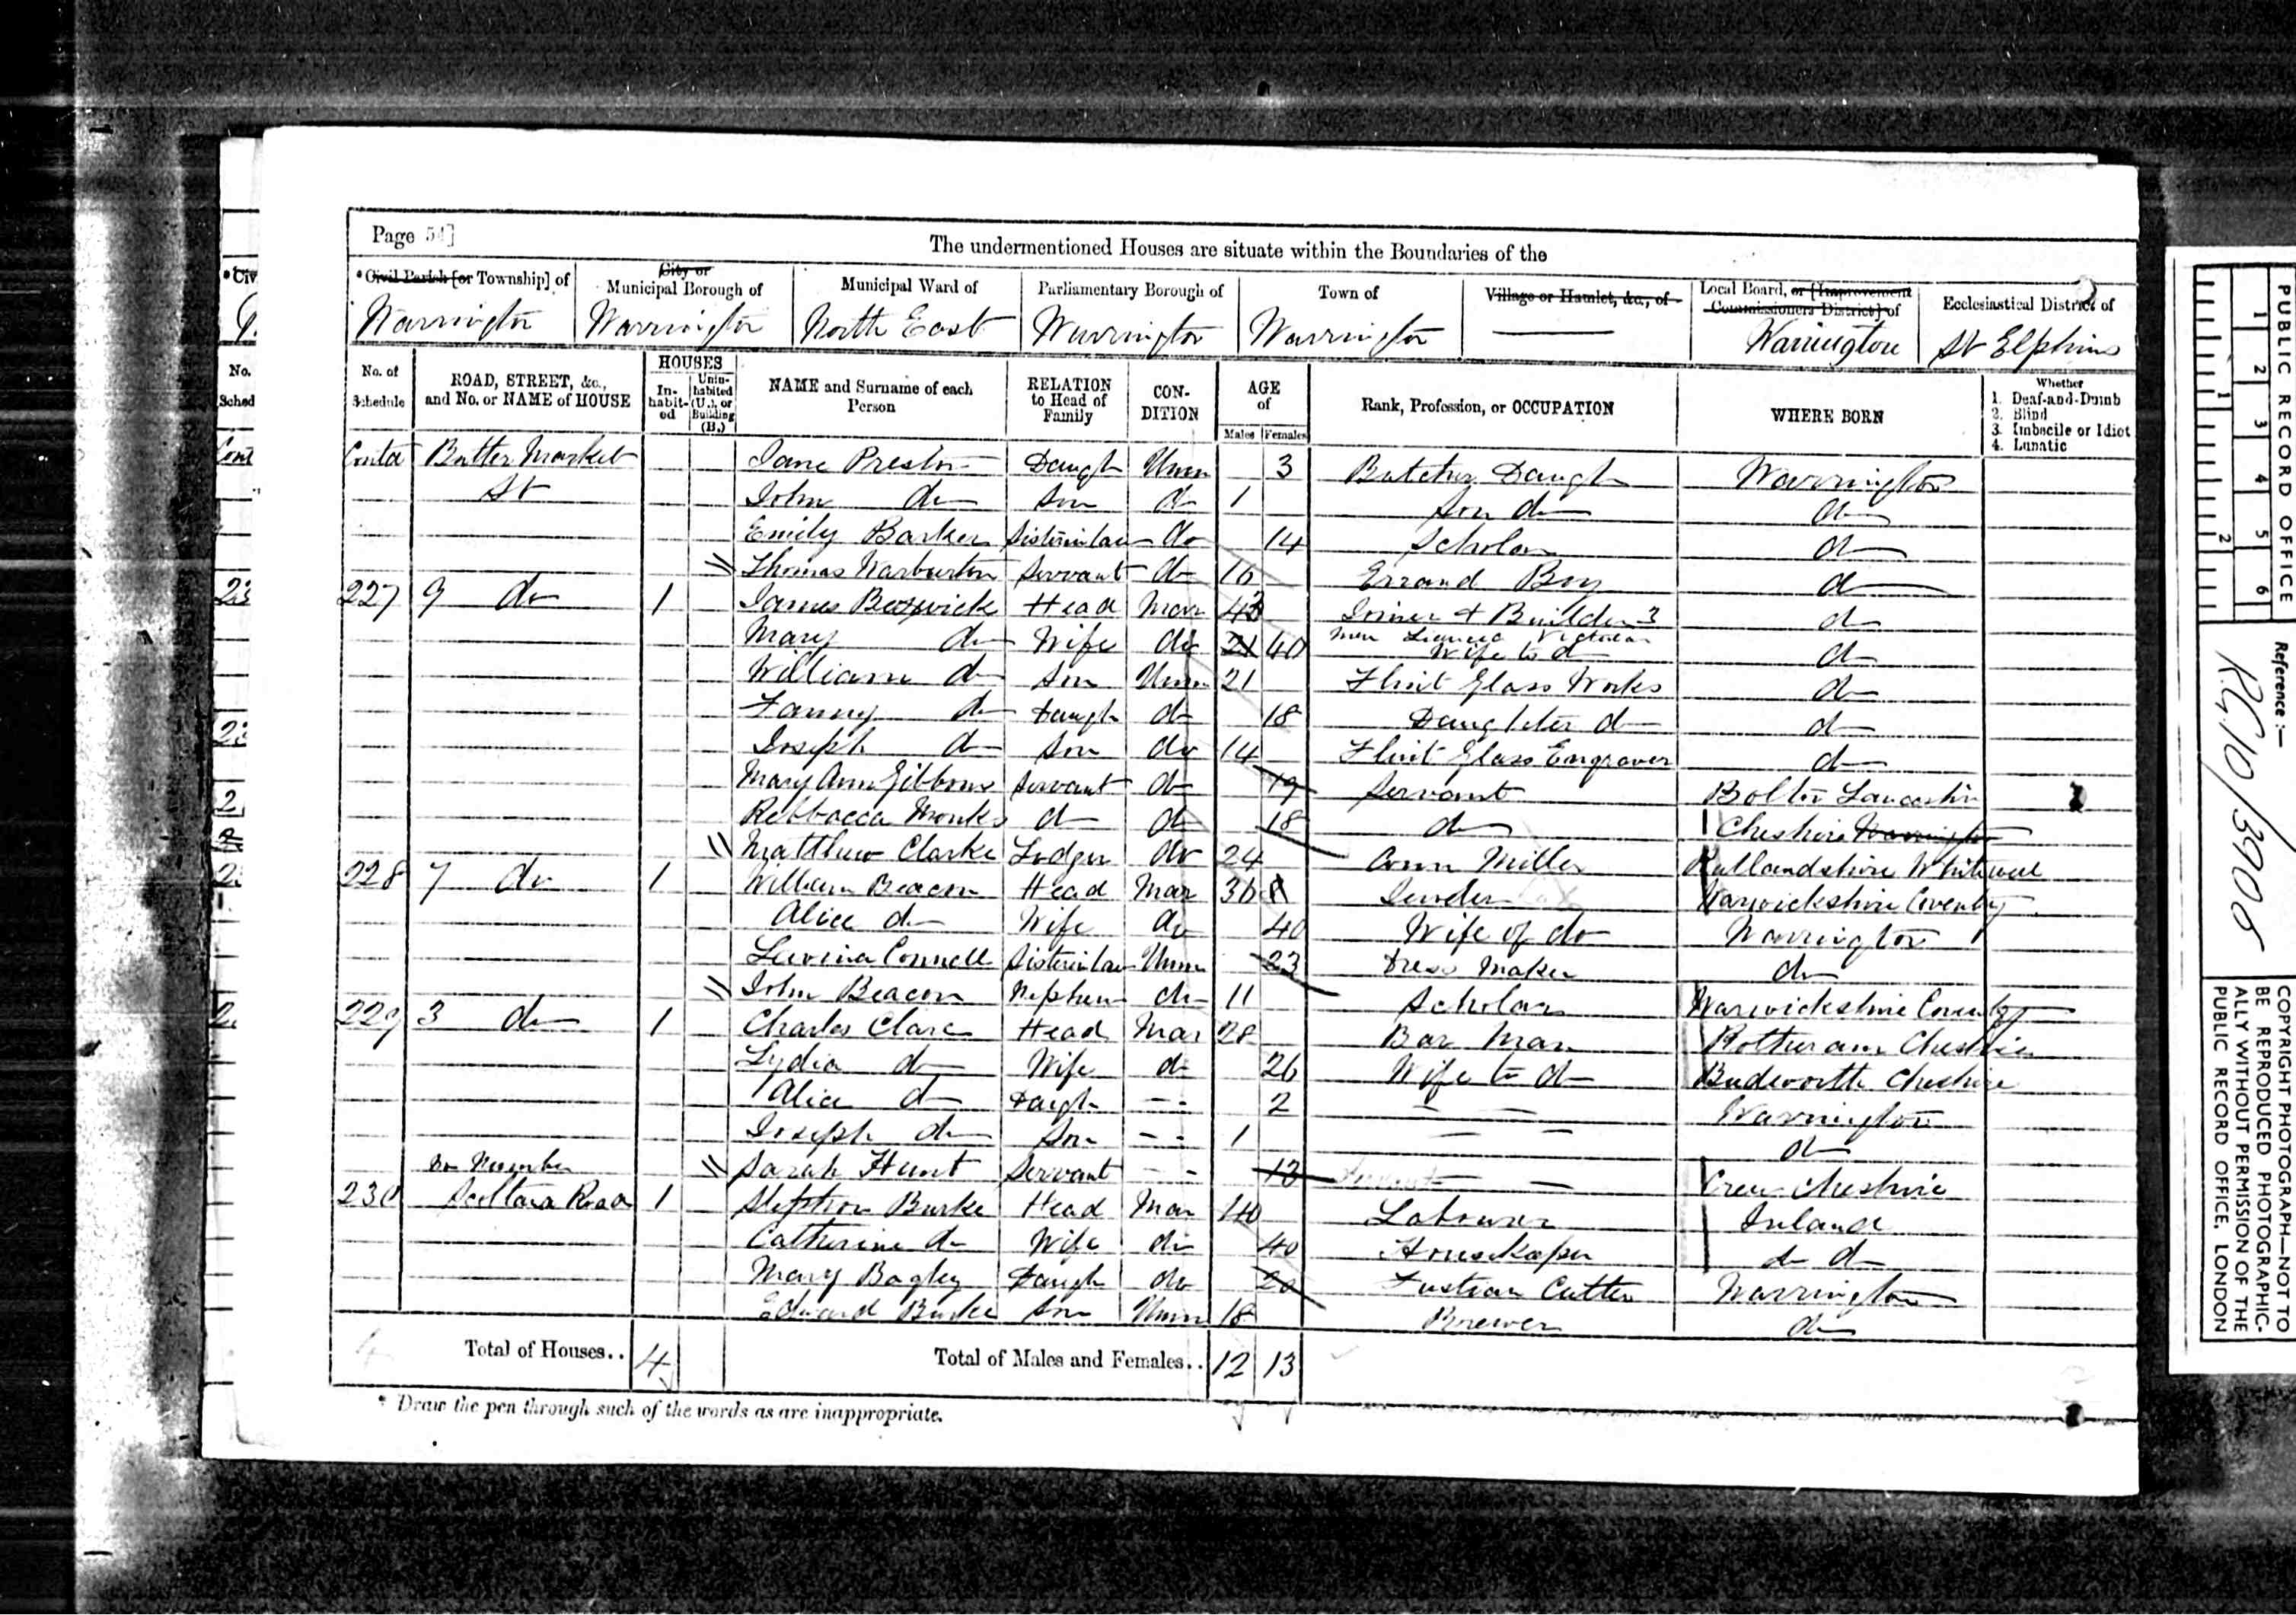 Page 54]
The undermentioned Houses are situate within the Boundaries of the
* Civil Parish [or Township] of
City or Municipal Borough of
Municipal Ward of
Parliamentary Borough of
Town of
Village or Hamlet, &c., of
Local Board, or [Improvement Commissioners District] of
Ecclesiastical District of
Warrington Warrington North East Warrington Warrington Warrington St Elphins
No. of Schedule
ROAD, STREET, &c., and No. or NAME of HOUSE
HOUSES
In-habit-ed
Unin-habited (U.), or Building (B.)
NAME and Surname of each Person
RELATION to Head of Family
CON-DITION
AGE of
Males Females
Rank, Profession, or OCCUPATION
WHERE BORN
Whether
1. Deaf-and-Dumb
2. Blind
3. Imbecile or Idiot
4. Lunatic
Contd Butter Market Jane Preston Daugh Unm 3 Butcher Daugh Warrington
St John do Son do 1 Son do do
Emily Barker Sisterinlaw do 14 Scholar do
Thomas Warburton Servant do 16 Errand Boy do
227 9 do 1 James Beswick Head Mar 43 Joiner & Builder 3 do
men Licenced
Mary do Wife do 21 40 Wife to do do
William do Son Unm 21 Flint Glass Works do
Fanny do Daugh do 18 Daughter do do
Joseph do Son do 14 Flint Glass Engraver do
Mary Ann Gibbons Servant do 19 Servant Bolton Lancashire
Rebbacca Monks do do 18 do Cheshire Warrington
Matthew Clarke Lodger do 24 Corn Miller Rutlandshire
228 7 do 1 William Beacon Head Mar 36 Warwickshire Coventry
Alice do Wife do 40 Wife of do Warrington
Lavina Connell Sisterinlaw Unm 23 Dress Maker do
John Beacon Nephew do 11 Scholar Warwickshire Coventry
229 3 do 1 Charles Clare Head Mar 28 Bar Man Cheshire
Lydia do Wife do 26 Wife to do Budworth Cheshire
Alice do Daugh - - 2 - - Warrington
Joseph do Son - - 1 - - do
no Number Sarah Hunt Servant - - 13 - - Crew Cheshire
230 Scotland Road 1 Stephen Burke Head Mar 40 Labourer Ireland
Catherine do Wife do 40 Housekeeper do do
Mary Bagley Daugh do 20 Fustian Cutter Warrington
Edward Burke Son Unm 18 Brewer do
4 Total of Houses.. 4 Total of Males and Females.. 12 13
* Draw the pen through such of the words as are inappropriate.
* Civ
No.
Sched
Cont
PUBLIC RECORD OFFICE
1 2 3 4 5 6
1 2
Reference :—
RG10/3908
COPYRIGHT PHOTOGRAPH—NOT TO
BE REPRODUCED PHOTOGRAPHIC-
ALLY WITHOUT PERMISSION OF THE
PUBLIC RECORD OFFICE, LONDON